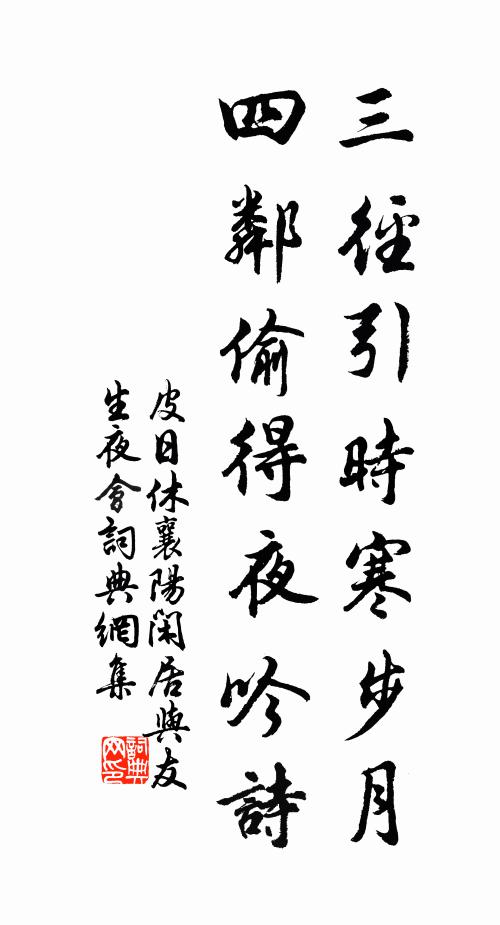 三徑引時寒步月
四鄰偷得夜吟詩
皮日休襄陽閑居與友
生夜會詞典網集
詞典
网印